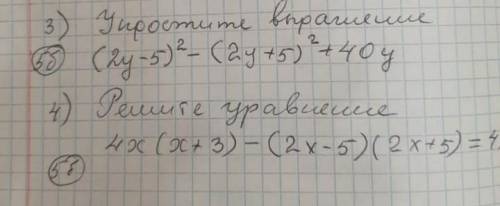 3) Упростите выражение
5б (2y-5)² - (2y+5)² + 40y
4) Решите уравнение
4x (x+3) - (2x-5)(2x+5) = 4
5б